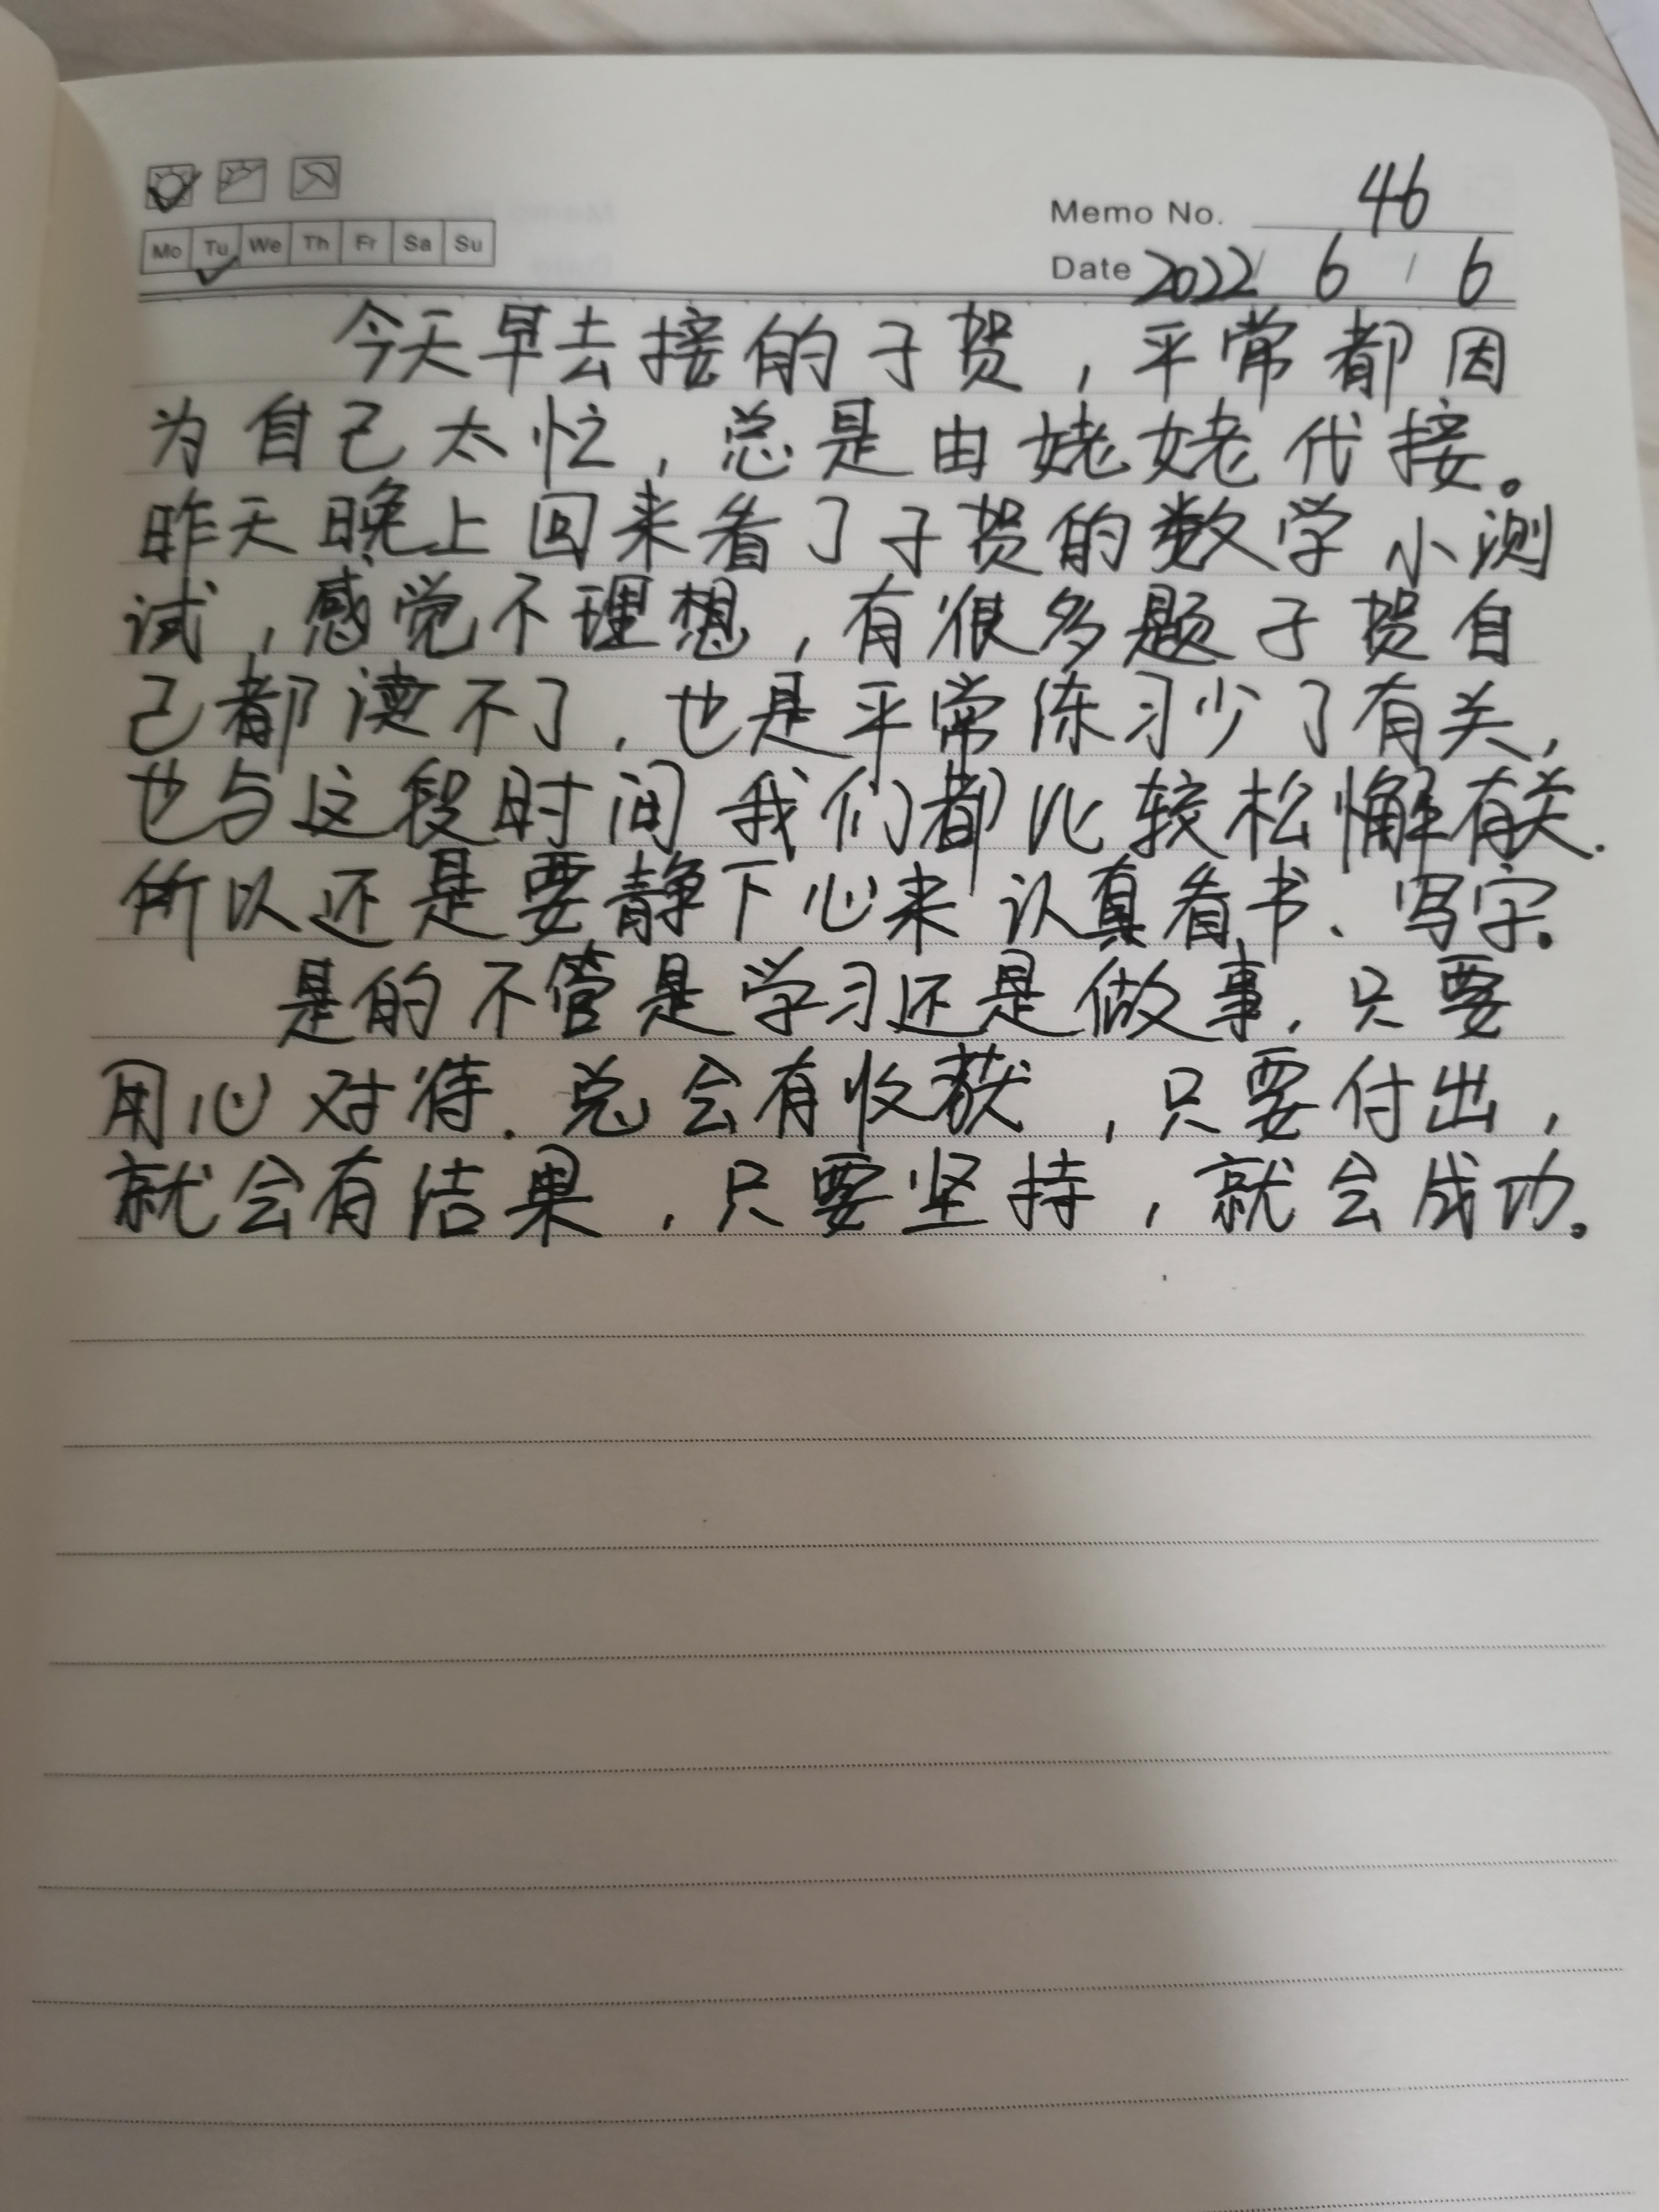 Memo No. 46
Mo Tu We Th Fr Sa Su
Date 2022 / 6 / 6
今天早去接的子贺，平常都因
为自己太忙，总是由姥姥代接。
昨天晚上回来看了子贺的数学小测
试，感觉不理想，有很多题子贺自
己都读不了，也是平常练习少了有关，
也与这段时间我们都比较松懈有关.
所以还是要静下心来认真看书、写字.
是的不管是学习还是做事，只要
用心对待.总会有收获，只要付出，
就会有结果，只要坚持，就会成功。